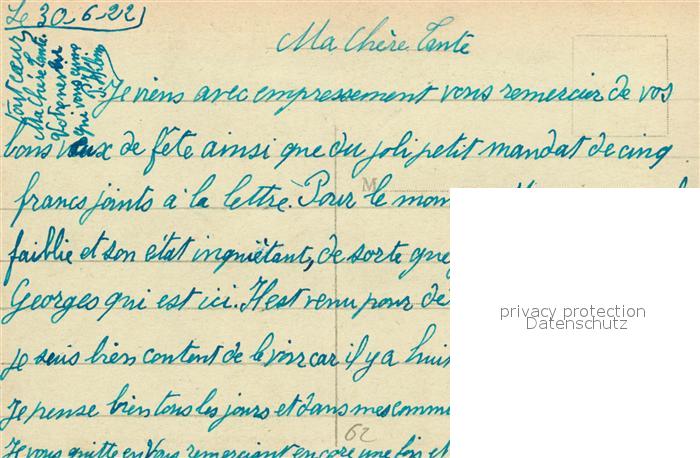 Le 30-6-22
Ma Chère Tante
Je viens avec empressement vous remercier de vos
bons vœux de fête ainsi que du joli petit mandat de cinq
francs joints à la lettre. Pour le mom
faiblie et son état inquiétant, de sorte que
Georges qui est ici. Il est venu pour de
je suis bien content de le voir car il y a huit
Je pense bien tous les jours et dans mes comm
Je vous quitte en Vous remerciant encore une fois et
Ma chère tante.
Votre neveu
qui vous aime
M
62
privacy protection
Datenschutz